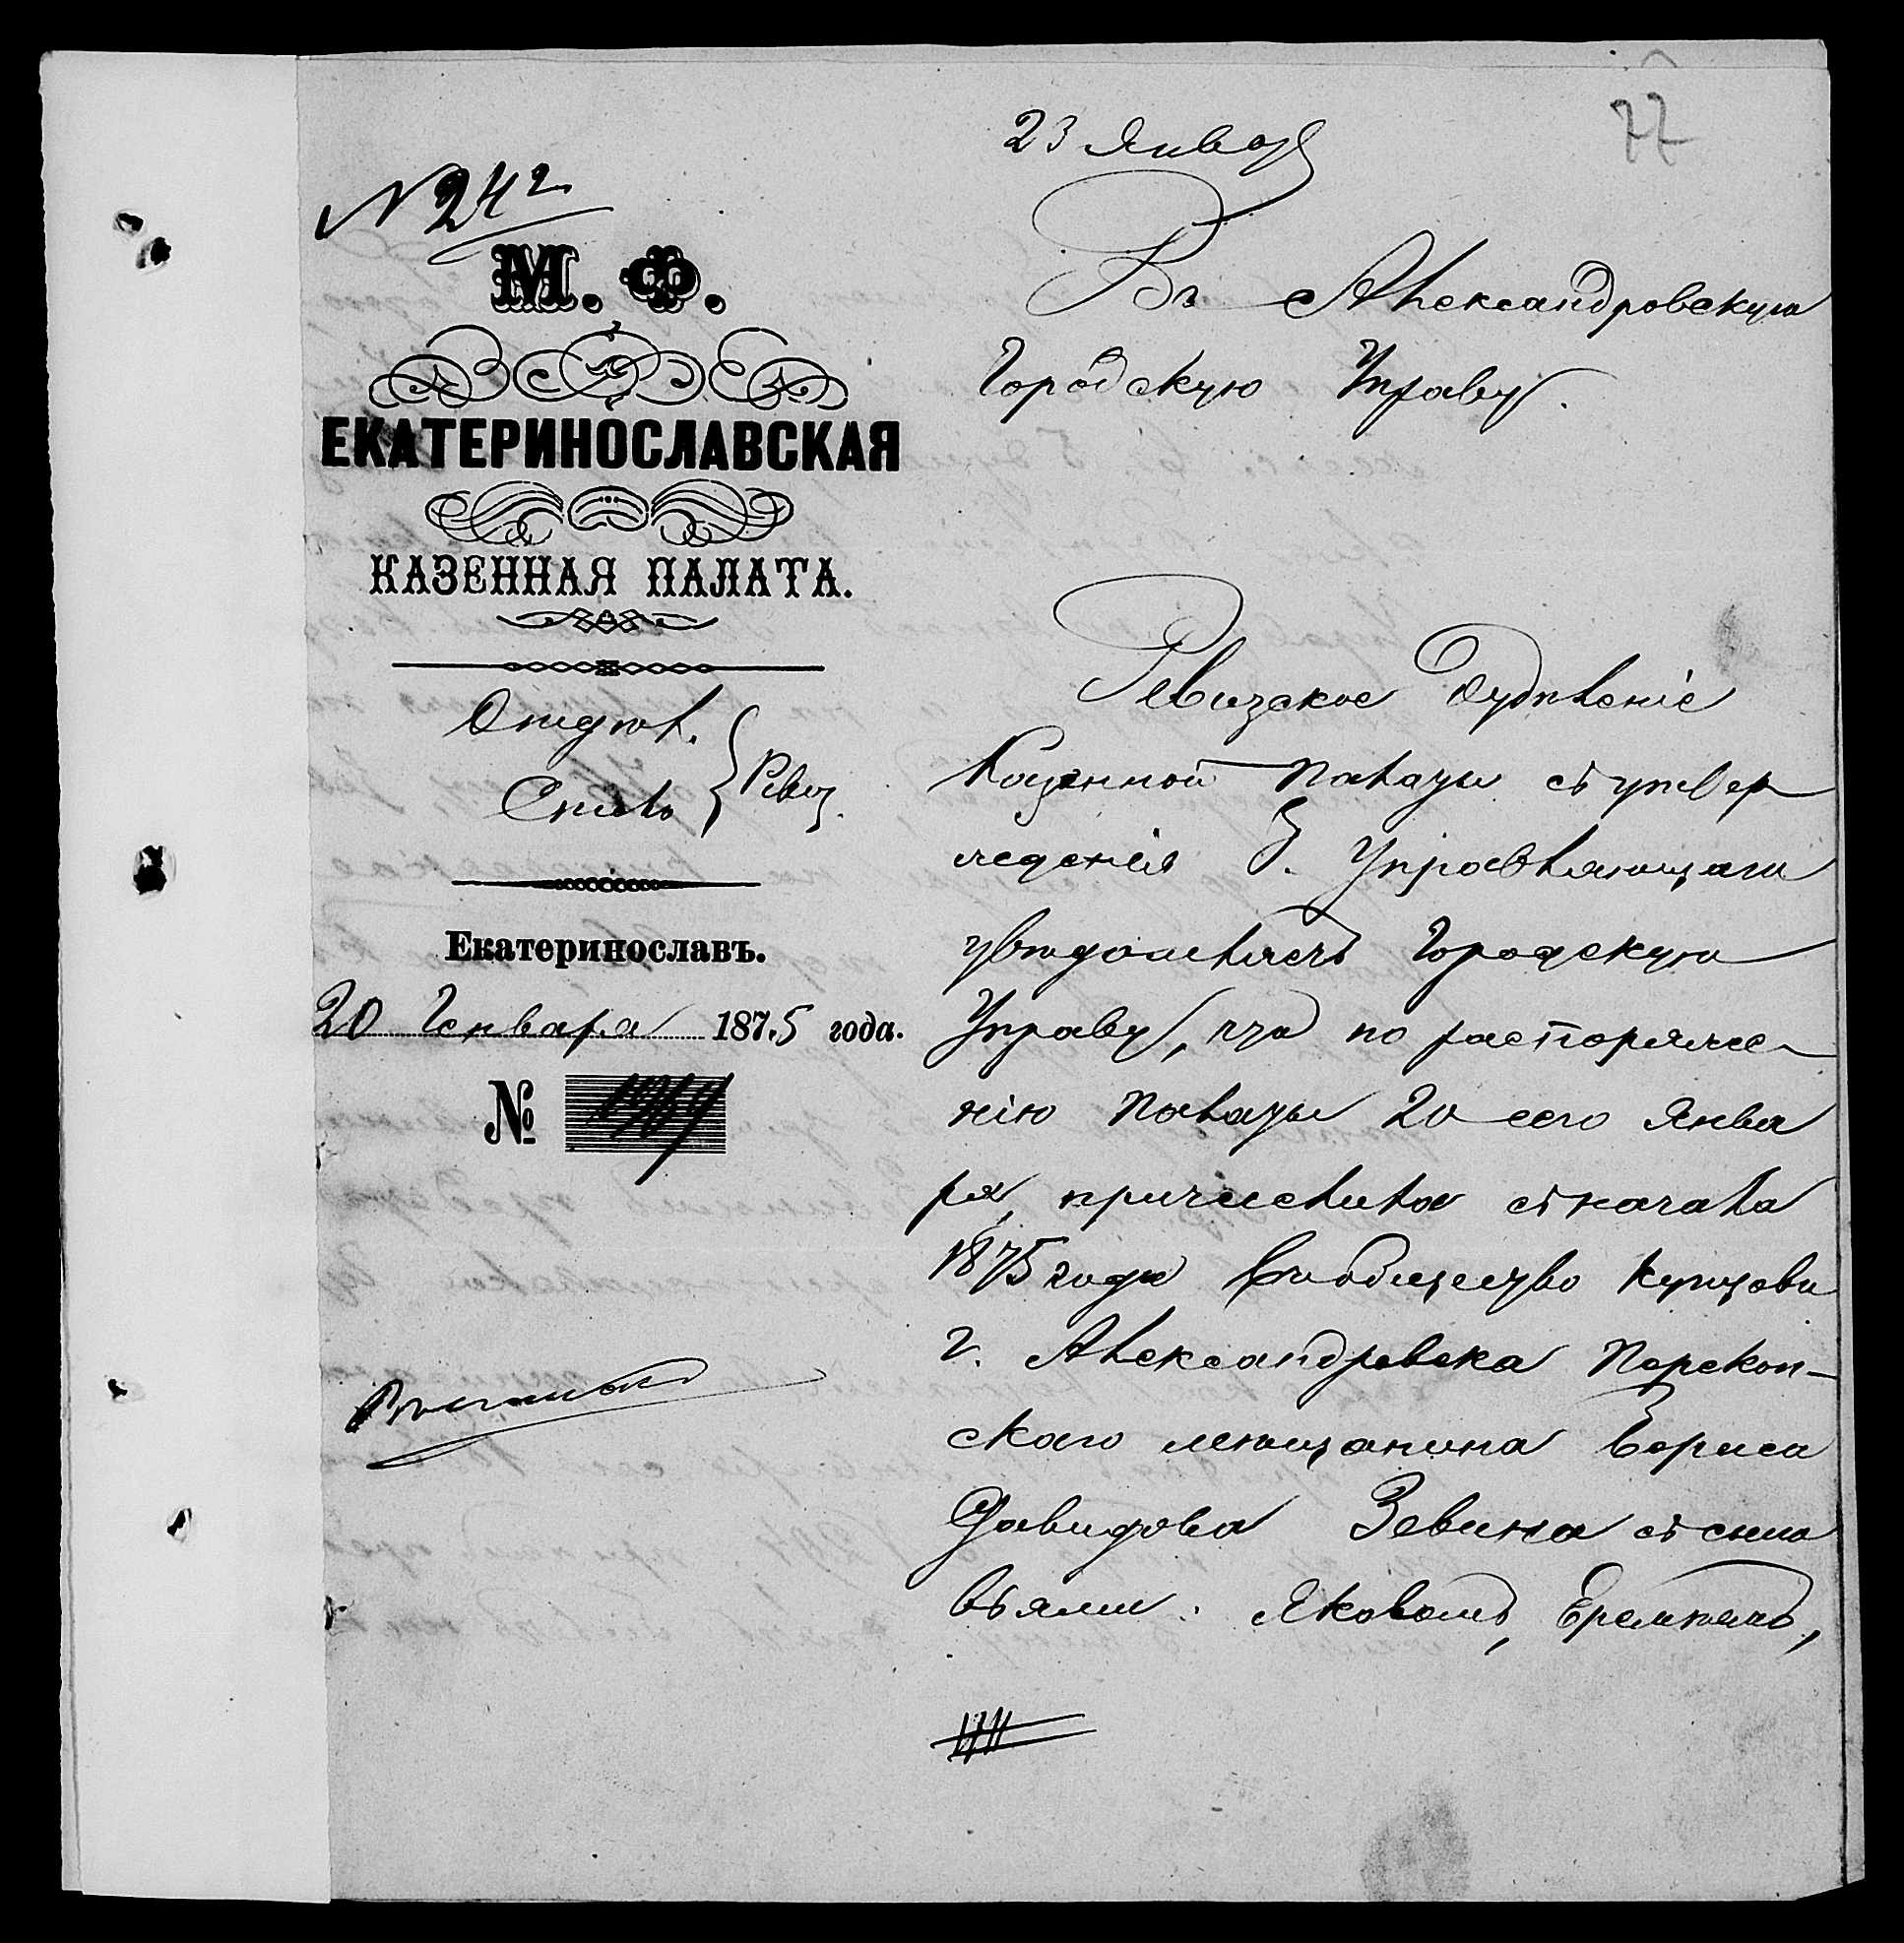 77
23 Января
№ 242
М. Ф.
ЕКАТЕРИНОСЛАВСКАЯ
КАЗЕННАЯ ПАЛАТА.
Отдѣл.
Столъ
Ревиз.
Екатеринославъ.
20 Генваря 1875 года.
№
Въ Александровскую
Городскую Управу.
Ревизское Отдѣленіе
Казенной Палаты съ утвер
жденія Г. Управляющаго
увѣдомляетъ Городскую
Управу, что по распоряже-
нію Палаты 20 сего Янва
ря, причислила съ начала
1875 года въ общество купцовъ
г. Александровска Перекоп-
скаго мѣщанина Бориса
Давидова Зевина съ сыно
вьями: Яковомъ, Еремѣемъ,